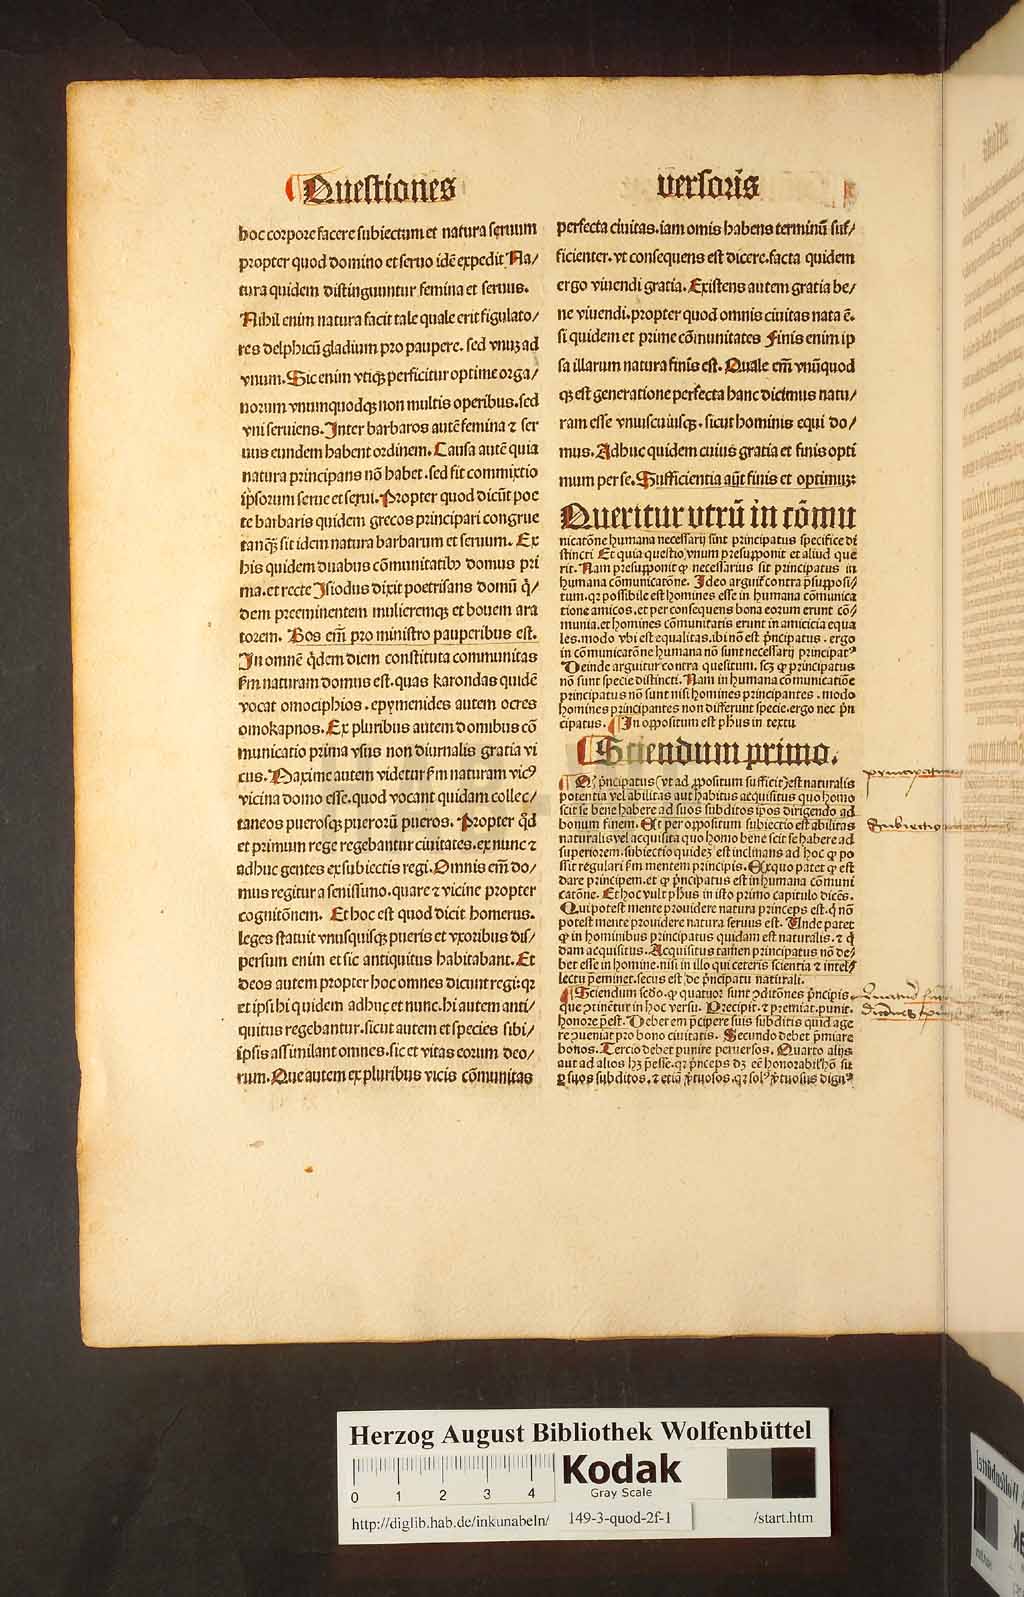 Questiones
versoris
hoc corpore facere subiectum et natura seruum
propter quod domino et seruo idē expedit Na/
tura quidem distinguuntur femina et seruus.
Nihil enim natura facit tale quale erit figulato/
res delphicū gladium pro paupere. sed vnuꝫ ad
vnum. Sic enim vtiqꝫ perficitur optime orga/
norum vnumquodqꝫ non multis operibus. sed
vni seruiens. Inter barbaros autē femina ⁊ ser
uus eundem habent ordinem. Causa autē quia
natura principans nō habet. sed fit commixtio
ipsorum serue et serui. Propter quod dicūt poe
te barbaris quidem grecos principari congrue
tanqꝫ sit idem natura barbarum et seruum. Ex
his quidem duabus cōmunitatibꝫ domus pri
ma. et recte Isiodus dixit poetrisans domū q̄/
dem preeminentem mulieremqꝫ et bouem ara
torem. Bos em̄ pro ministro pauperibus est.
In omnē q̄dem diem constituta communitas
ſm naturam domus est. quas karondas quidē
vocat omociphios. epymenides autem ocres
omokapnos. Ex pluribus autem domibus cō
municatio prima vsus non diurnalis gratia vi
cus. Maxime autem videtur ſm naturam vicꝰ
vicina domo esse. quod vocant quidam collec/
taneos puerosqꝫ puerorū pueros. Propter q̄d
et primum rege regebantur ciuitates. ex nunc ⁊
adhuc gentes ex subiectis regi. Omnis em̄ do/
mus regitur a senissimo. quare ⁊ vicine propter
cognitōnem. Et hoc est quod dicit homerus.
leges statuit vnusquisqꝫ pueris et vxoribus dis/
persum enim et sic antiquitus habitabant. Et
deos autem propter hoc omnes dicunt regi: qꝛ
et ipsi hi quidem adhuc et nunc. hi autem anti/
quitus regebantur. sicut autem et species sibi/
ipsis assimilant omnes. sic et vitas eorum deo/
rum. Que autem ex pluribus vicis cōmunitas
perfecta ciuitas. iam omīs habens terminū suf/
ficienter. vt consequens est dicere. facta quidem
ergo viuendi gratia. Existens autem gratia be/
ne viuendi. propter quod omnis ciuitas nata ē.
si quidem et prime cōmunitates Finis enim ip
sa illarum natura finis est. Quale em̄ vnūquod
qꝫ est generatione perfecta hanc dicimus natu/
ram esse vnuscuiusqꝫ. sicut hominis equi do/
mus. Adhuc quidem cuius gratia et finis opti
mum per se. Sufficientia aūt finis et optimuꝫ:
Queritur vtrū in cōmu
nicatōne humana necessarij sint principatus specifice di
stincti Et quia questio vnum presupponit et aliud que
rit. Nam presupponit ꝙ necessarius sit principatus in
humana cōmunicatōne. Ideo arguit̄ contra p̄supposi/
tum. qꝛ possibile est homines esse in humana cōmunica
tione amicos. et per consequens bona eorum erunt cō/
munia. et homines cōmunitatis erunt in amicicia equa
les. modo vbi est equalitas. ibi nō est p̄ncipatus. ergo
in cōmunicatōne humana nō sunt necessarij principatꝰ
Deinde arguitur contra quesitum. scꝫ ꝙ principatus
nō sunt specie distincti. Nam in humana cōmunicatiōe
principatus nō sunt nisi homines principantes. modo
homines principantes non differunt specie. ergo nec p̄n
cipatus. In oppositum est ph̄us in textu
Sciendum primo.
Qꝙ p̄ncipatus (vt ad ꝓpositum sufficit) est naturalis
potentia vel abilitas aut habitus acquisitus quo homo
scit se bene habere ad suos subditos ip̄os dirigendo ad
bonum finem. Et per oppositum subiectio est abilitas
naturalis vel acquisita quo homo bene scit se habere ad
superiorem. subiectio quideꝫ est inclinans ad hoc ꝙ po
ssit regulari ſm mentem principis. Ex quo patet ꝙ est
dare principem. et ꝙ p̄ncipatus est in humana cōmuni
catōne. Et hoc vult ph̄us in isto primo capitulo dicēs.
Qui potest mente prouidere natura princeps est. q̄ nō
potest mente prouidere natura seruus est. Unde patet
ꝙ in hominibus principatus quidam est naturalis. ⁊ q̄
dam acquisitus. Acquisitus tamen principatus nō de/
bet esse in homine. nisi in illo qui ceteris scientia ⁊ intel/
lectu p̄eminet. secus est de p̄ncipatu naturali.
Sciendum scd̄o. ꝙ quatuor sunt ꝯditōnes p̄ncipis
que ꝯtinētur in hoc versu. Precipit. ⁊ premiat. punit.
honore p̄est. Debet em̄ p̄cipere suis subditis quid age
re ꝯueniat pro bono ciuitatis. Secundo debet p̄miare
bonos. Tercio debet punire peruersos. Quarto alijs
aut ad alios hꝫ p̄esse. qꝛ p̄nceps dꝫ eē honorabilꝰ hō sit
ꝑ suos subditos. ⁊ etiā v̄tuosos. qꝛ solꝰ v̄tuosus dignꝰ
principatus
Subiectio
Herzog August Bibliothek Wolfenbüttel
0 1 2 3 4
Kodak
Gray Scale
http://diglib.hab.de/inkunabeln/ 149-3-quod-2f-1 /start.htm